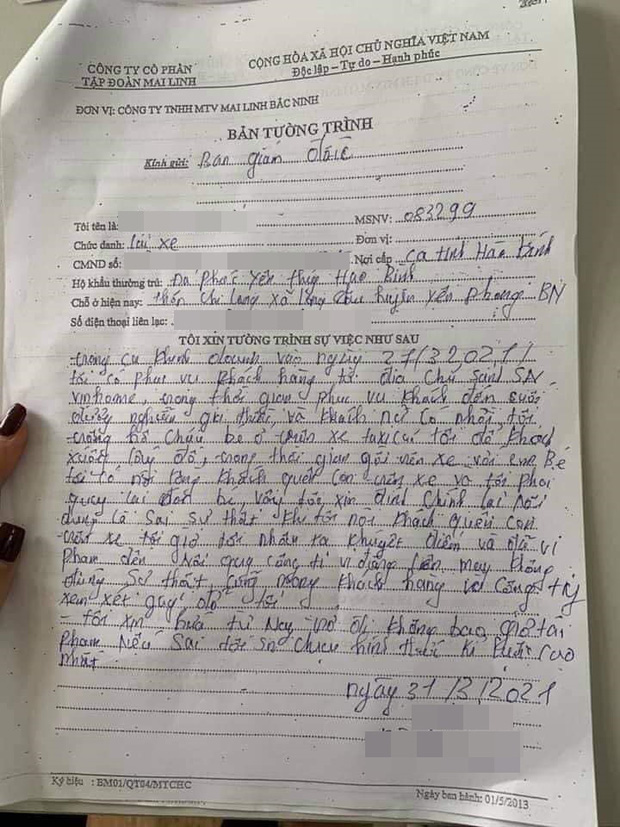 CÔNG TY CỔ PHẦN
TẬP ĐOÀN MAI LINH
CỘNG HÒA XÃ HỘI CHỦ NGHĨA VIỆT NAM
Độc lập – Tự do – Hạnh phúc
ĐƠN VỊ: CÔNG TY TNHH MTV MAI LINH BẮC NINH
BẢN TƯỜNG TRÌNH
Kính gửi: Ban giám đốc
Tôi tên là: MSNV: 083299
Chức danh: lái xe Đơn vị:
CMND số: Nơi cấp CA tỉnh Hòa Bình
Hộ khẩu thường trú: Đa Phúc Yên Thủy Hòa Bình
Chỗ ở hiện nay: thôn Chi Long xã Long Châu huyện Yên Phong BN
Số điện thoại liên lạc:
TÔI XIN TƯỜNG TRÌNH SỰ VIỆC NHƯ SAU
- trong ca kinh doanh vào ngày 27/3 2021
tôi có phục vụ khách hàng từ địa chỉ
vinhome, trong thời gian phục vụ khách đến cuối
đường và khách nữ có nhờ tôi
trông hộ cháu bé ở trên xe taxi cú tôi để khách
xuống lấy đồ, trong thời gian gửi trên xe với em Bé
tôi có nói rằng khách quên con trên xe và tôi phải
quay lại đón bé, vậy tôi xin đính chính lại nội
dung là sai sự thật khi tôi nói khách quên con
trên xe tôi giờ tôi nhận ra khuyết điểm và đã vi
phạm đến nội quy công ti vì đăng lên mạy không
đúng sự thật, cũng mong khách hàng và công ty
xem xét giúp đỡ tôi
- tôi xin hứa từ nay trở đi không bao giờ tái
phạm nếu sai tôi xin chịu hình thức kỉ luật cao
nhất
ngày 31/3/2021
Ký hiệu : BM01/QT04/MTCHC
Ngày ban hành: 01/5/2013